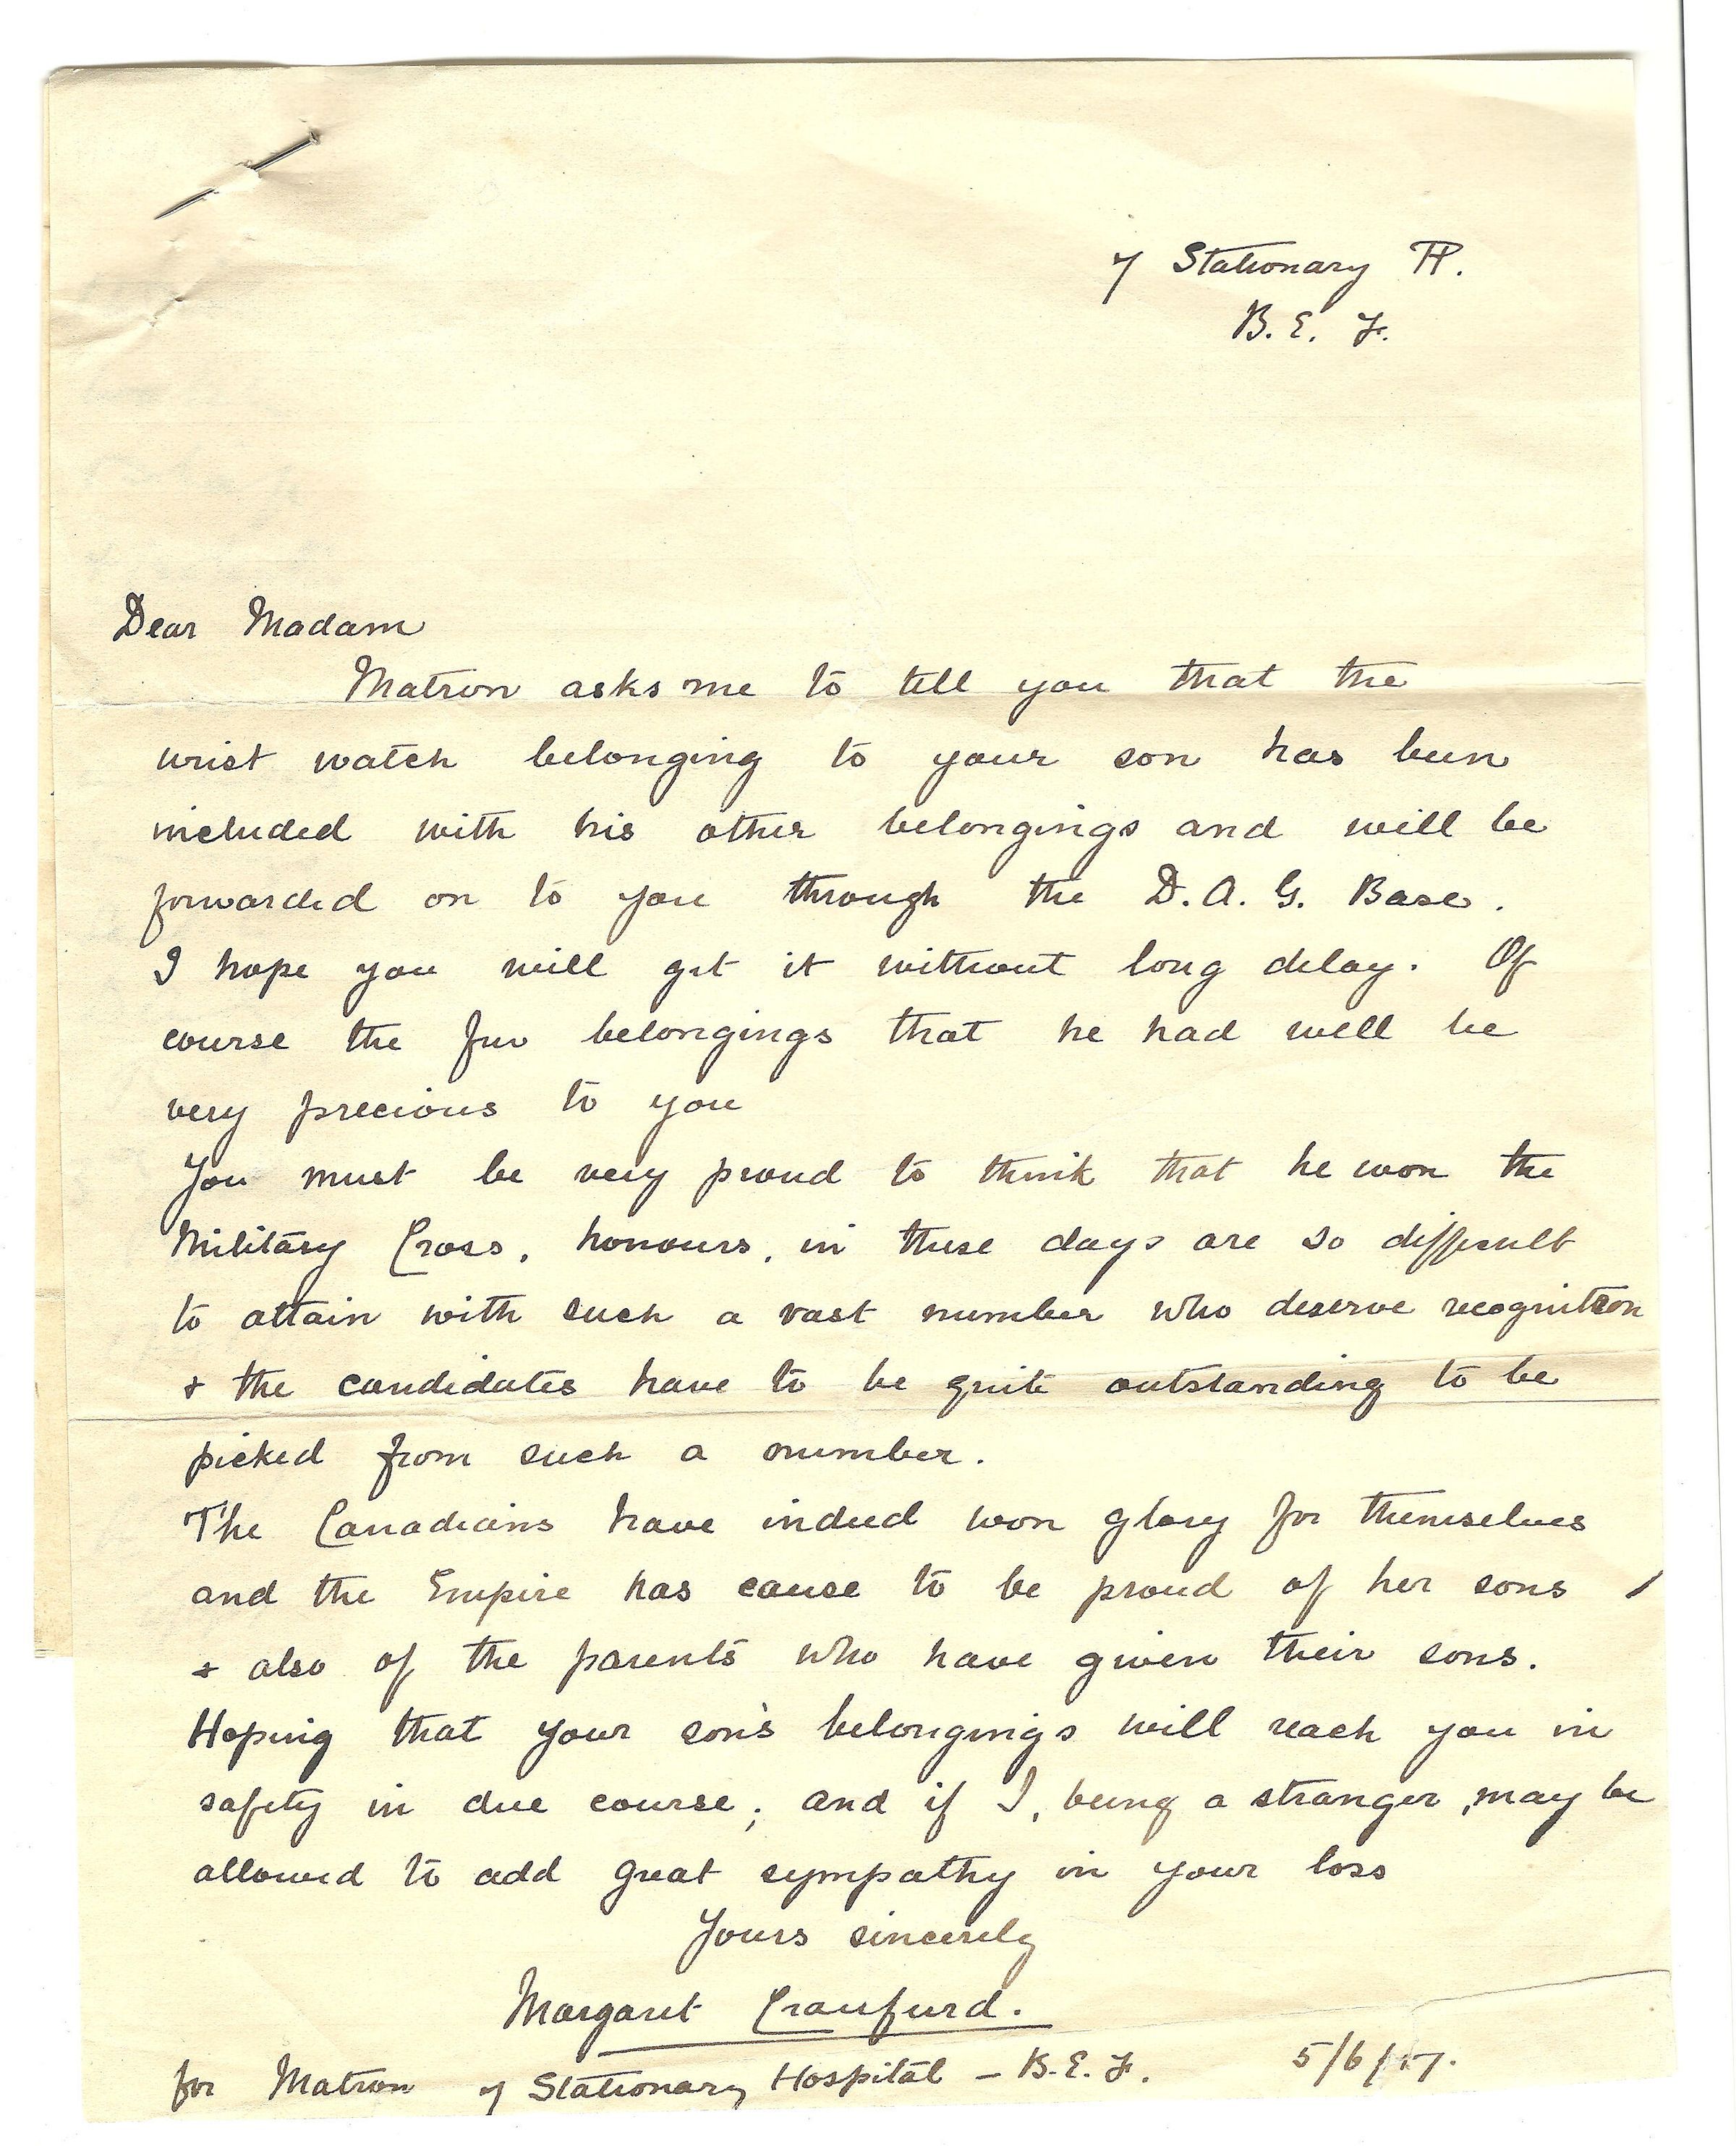 7 Stationary H.
B. E. F.
Dear Madam
Matron asks me to tell you that the
wrist watch belonging to your son has been
included with his other belongings and will be
forwarded on to you through the D. A. G. Base.
I hope you will get it without long delay. Of
course the few belongings that he had will be
very precious to you
You must be very proud to think that he won the
Military Cross, honours, in these days are so difficult
to attain with such a vast number who deserve recognition
+ the candidates have to be quite outstanding to be
picked from such a number.
The Canadians have indeed won glory for themselves
and the Empire has cause to be proud of her sons /
+ also of the parents who have given their sons.
Hoping that your son's belongings will reach you in
safety in due course; and if I, being a stranger, may be
allowed to add great sympathy in your loss
Yours sincerely
Margaret Craufurd.
for Matron 7 Stationary Hospital – B. E. F. 5/6/17.